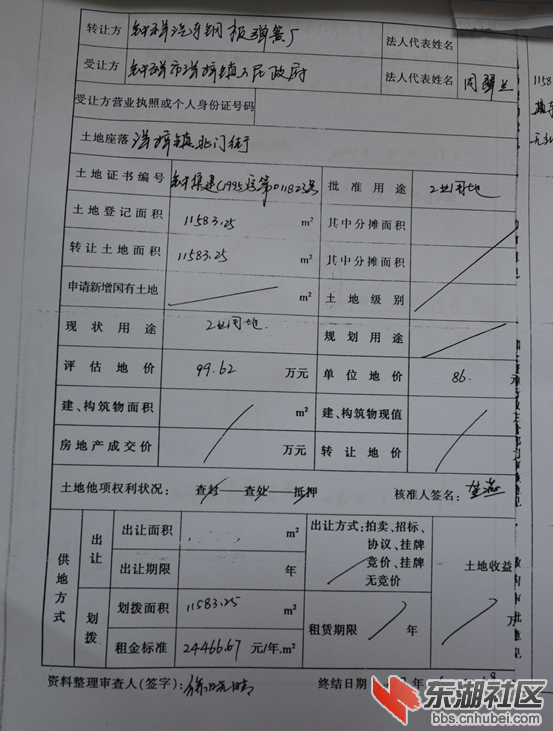 转让方 钟祥汽车钢板弹簧厂 法人代表姓名
受让方 钟祥市洋梓镇人民政府 法人代表姓名
受让方营业执照或个人身份证号码
土地座落 洋梓镇北门街
土地证书编号 批准用途 工业用地
土地登记面积 11583.25 m² 其中分摊面积
转让土地面积 11583.25 m² 其中分摊面积
申请新增国有土地 m² 土地级别
现状用途 工业用地 规划用途
评估地价 99.62 万元 单位地价 86. 元
建、构筑物面积 m² 建、构筑物现值
房地产成交价 万元 转让地价
土地他项权利状况: 查封 查处 抵押 核准人签名:
供地方式
出让 出让面积 m² 出让方式:拍卖、招标、
协议、挂牌
竞价、挂牌
无竞价
土地收益
出让期限 年
划拨 划拨面积 11583.25 m² 租赁期限 年 万
租金标准 24466.67 元/年.m²
资料整理审查人(签字): 终结日期
11583
东湖社区
bbs.cnhubei.com